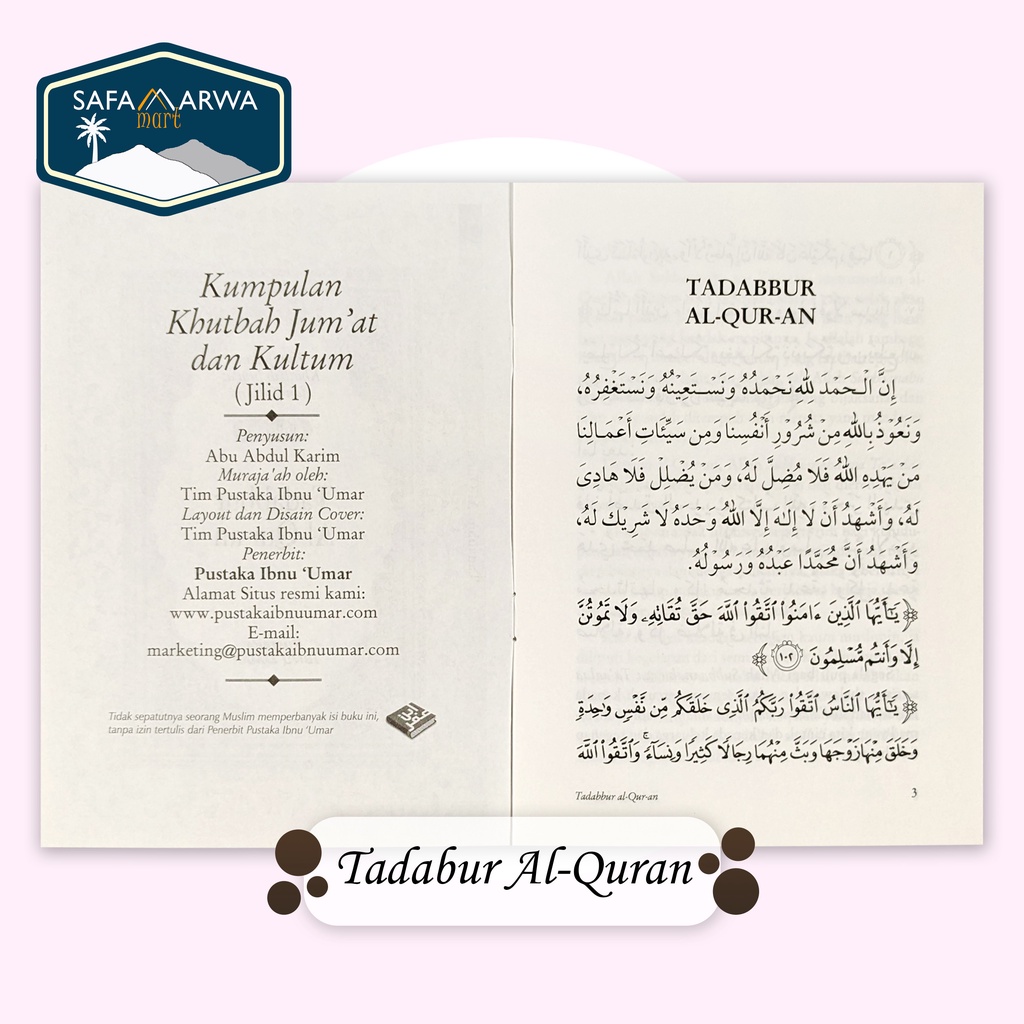 SAFA MARWA
mart
Kumpulan
Khutbah Jum'at
dan Kultum
( Jilid 1 )
Penyusun:
Abu Abdul Karim
Muraja'ah oleh:
Tim Pustaka Ibnu ‘Umar
Layout dan Disain Cover:
Tim Pustaka Ibnu ‘Umar
Penerbit:
Pustaka Ibnu ‘Umar
Alamat Situs resmi kami:
www.pustakaibnuumar.com
E-mail:
marketing@pustakaibnuumar.com
Tidak sepatutnya seorang Muslim memperbanyak isi buku ini,
tanpa izin tertulis dari Penerbit Pustaka Ibnu ‘Umar
TADABBUR
AL-QUR-AN
إِنَّ الْحَمْدَ لِلّٰهِ نَحْمَدُهُ وَنَسْتَعِيْنُهُ وَنَسْتَغْفِرُهُ،
وَنَعُوْذُ بِاللهِ مِنْ شُرُوْرِ أَنْفُسِنَا وَمِن سَيِّئَاتِ أَعْمَالِنَا
مَنْ يَهْدِهِ اللهُ فَلَا مُضِلَّ لَهُ، وَمَنْ يُضْلِلْ فَلَا هَادِىَ
لَهُ، وَأَشْهَدُ أَنْ لَا إِلَهَ إِلَّا اللهُ وَحْدَهُ لَا شَرِيْكَ لَهُ،
وَأَشْهَدُ أَنَّ مُحَمَّدًا عَبْدُهُ وَرَسُوْلُهُ.
﴿ يَٰٓأَيُّهَا ٱلَّذِينَ ءَامَنُوا۟ ٱتَّقُوا۟ ٱللَّهَ حَقَّ تُقَاتِهِۦ وَلَا تَمُوتُنَّ
إِلَّا وَأَنتُم مُّسْلِمُونَ ١٠٢ ﴾
﴿ يَٰٓأَيُّهَا ٱلنَّاسُ ٱتَّقُوا۟ رَبَّكُمُ ٱلَّذِى خَلَقَكُم مِّن نَّفْسٍ وَٰحِدَةٍ
وَخَلَقَ مِنْهَا زَوْجَهَا وَبَثَّ مِنْهُمَا رِجَالًا كَثِيرًا وَنِسَآءً ۚ وَٱتَّقُوا۟ ٱللَّهَ
Tadabbur al-Qur-an 3
Tadabur Al-Quran